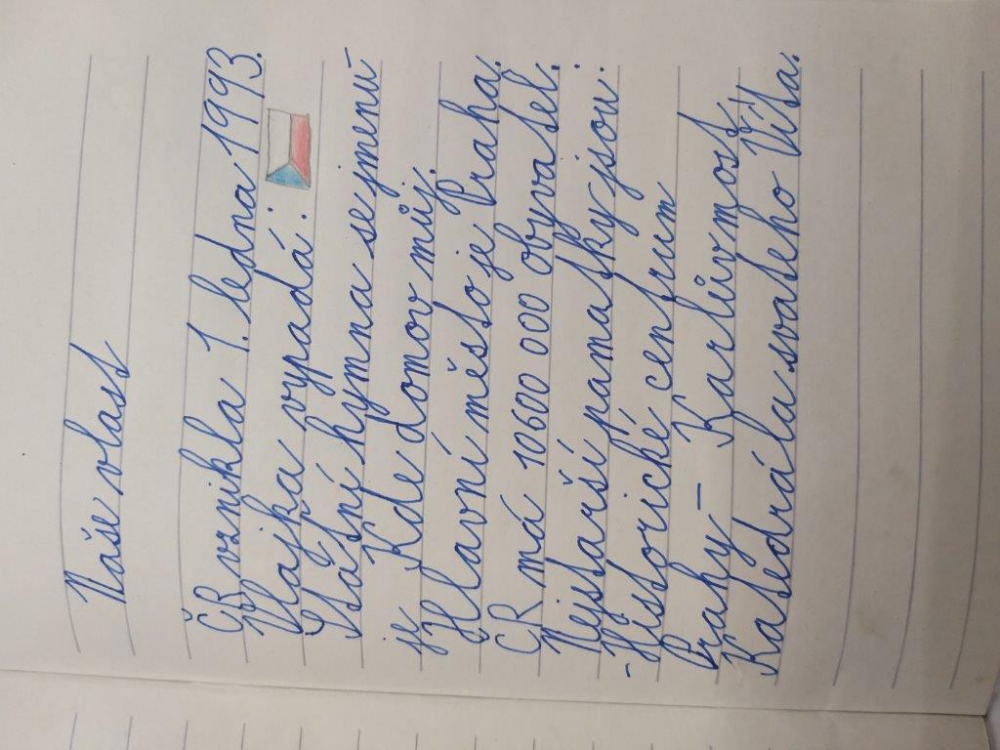 Naše vlast
ČR vznikla 1. ledna 1993.
Vlajka vypadá:
Státní hymna se jmenu-
je Kde domov můj.
Hlavní město je Praha.
ČR má 10600 000 obyvatel.
Nejstarší pamatky jsou:
-Historické centrum
Prahy - Karlův most,
Katedrála svateho Víta.